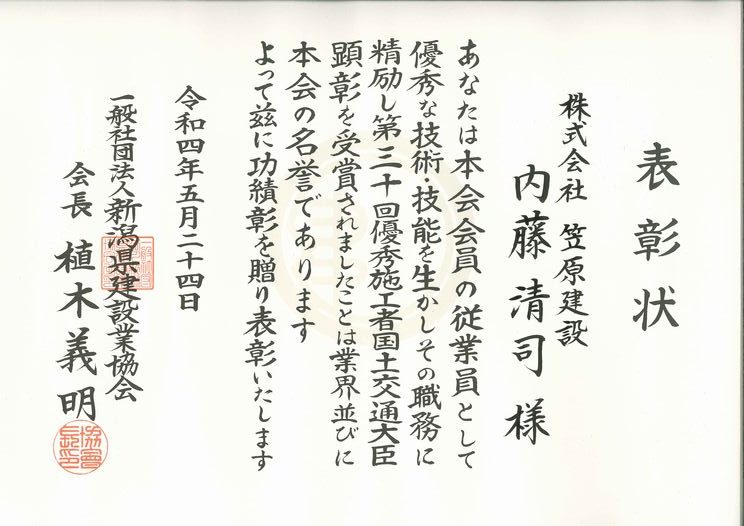 表彰状
株式会社 笠原建設
内藤清司様
あなたは本会会員の従業員として
優秀な技術・技能を生かしその職務に
精励し第三十回優秀施工者国土交通大臣
顕彰を受賞されましたことは業界並びに
本会の名誉であります
よって茲に功績彰を贈り表彰いたします
令和四年五月二十四日
一般社団法人新潟県建設業協会
会長 植木義明